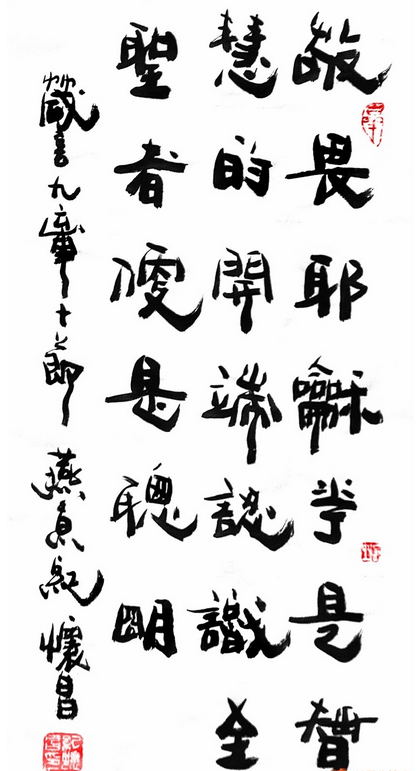 敬畏耶龢華是智
慧的開端認識至
聖者便是聰明
箴言九章十節 燕京紀懷昌